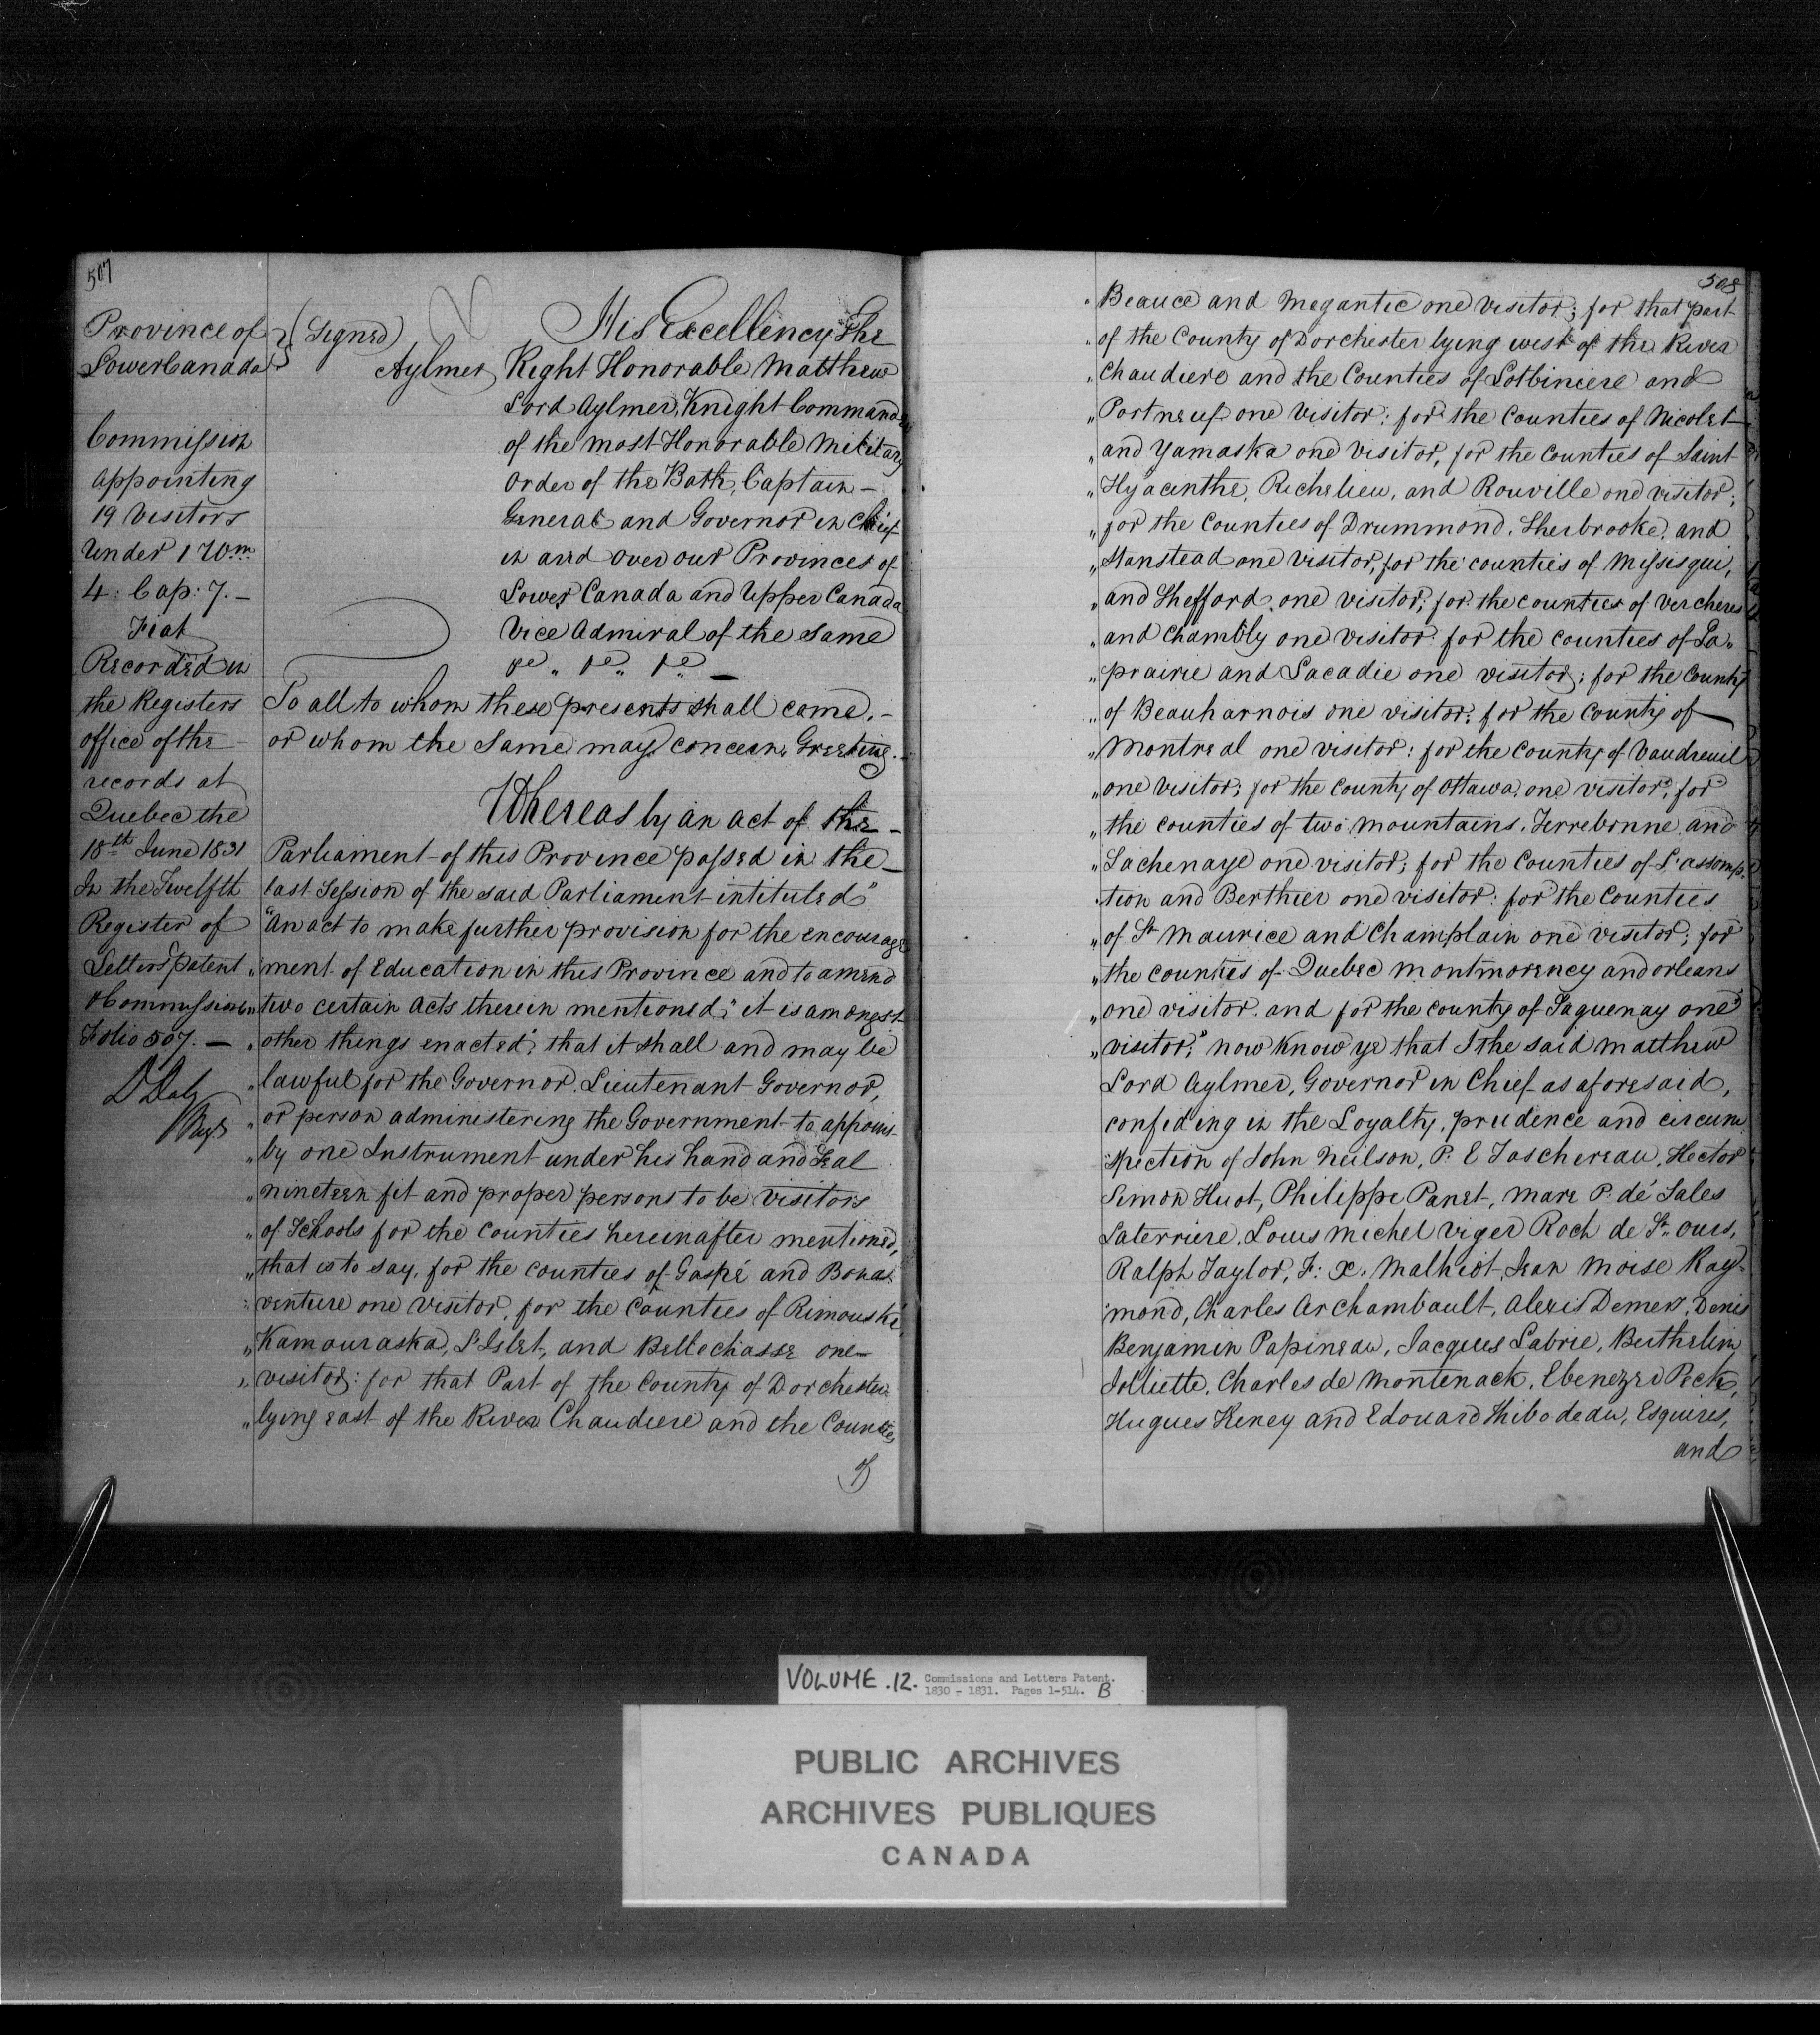 507
Province of
Lower Canada
Commission
appointing
19 Visitors
Under 1 Wm.
4: Cap: 7. –
Fiat
Recorded in
the Registers
office of the
records at
Quebec the
18th June 1831
In the Twelfth
Register of
Letters Patent
& Commissions
Folio 507. –
D Daly
Regr
(Signed)
Aylmer
His Excellency The
Right Honorable Matthew
Lord Aylmer, Knight Commander
of the most Honorable Military
Order of the Bath, Captain –
General and Governor in Chief
in and over our Provinces of
Lower Canada and Upper Canada
Vice Admiral of the same
&c „ &c „ &c –
To all to whom these presents shall come, –
or whom the same may concern, Greeting. –
Whereas by an act of the –
Parliament of this Province passed in the –
last Session of the said Parliament intituled"
"An act to make further provision for the encourage
„ment of Education in this Province and to amend
„two certain Acts therein mentioned;" it is amongst
„other things enacted; that it shall and may be
„lawful for the Governor, Lieutenant Governor,
„or person administering the Government to appoint
„by one Instrument under his hand and Seal
„nineteen fit and proper persons to be Visitors
„of Schools for the Counties hereinafter mentioned,
„that is to say, for the counties of Gaspé and Bona
„venture one Visitor, for the Counties of Rimouski,
„Kamouraska, L'Islet, and Bellechasse one –
„visitor: for that Part of the County of Dorchester
„lying east of the River Chaudiere and the Counties
of
508
„Beauce and Megantic one visitor; for that part
„of the County of Dorchester lying west of the River
„Chaudiere and the Counties of Lotbiniere and
„Portneuf one Visitor: for the Counties of Nicolet
„and Yamaska one visitor, for the counties of Saint
„Hyacinthe, Richelieu, and Rouville one visitor;
„for the Counties of Drummond, Sherbrooke, and
„Stanstead one visitor, for the counties of Missisqui,
„and Shefford one visitor; for the counties of Vercheres
„and Chambly one visitor for the counties of La„
„prairie and Lacadie one visitor; for the County
„of Beauharnois one visitor; for the County of
„Montreal one visitor: for the county of Vaudreuil
„one visitor; for the county of Ottawa, one visitor, for
„the counties of two mountains, Terrebonne and
„Lachenaye one visitor; for the Counties of L'assomp.
„tion and Berthier one visitor: for the Counties
„of St Maurice and Champlain one visitor; for
„the counties of Quebec Montmorency and orleans
„one visitor. and for the county of Saguenay one
„visitor;" now know ye that I the said Matthew
Lord Aylmer, Governor in Chief as aforesaid,
confiding in the Loyalty, prudence and circum
spection of John Neilson, P. E Taschereau, Hector
Simon Huot, Philippe Panet, Marc P. dé Sales
Laterriere, Louis Michel Viger Roch de St. ours,
Ralph Taylor, F: X. Malhiot, Jean Moise Ray=
mond, Charles Archambault, Alexis Demers, Denis
Benjamin Papineau, Jacques Labrie, Berthelim
Jolliette, Charles de Montenack, Ebenezer Peck,
Hugues Heney and Edouard Thibodeau, Esquires,
and
VOLUME .12. Commissions and Letters Patent.
1830 - 1831. Pages 1-514. B
PUBLIC ARCHIVES
ARCHIVES PUBLIQUES
CANADA